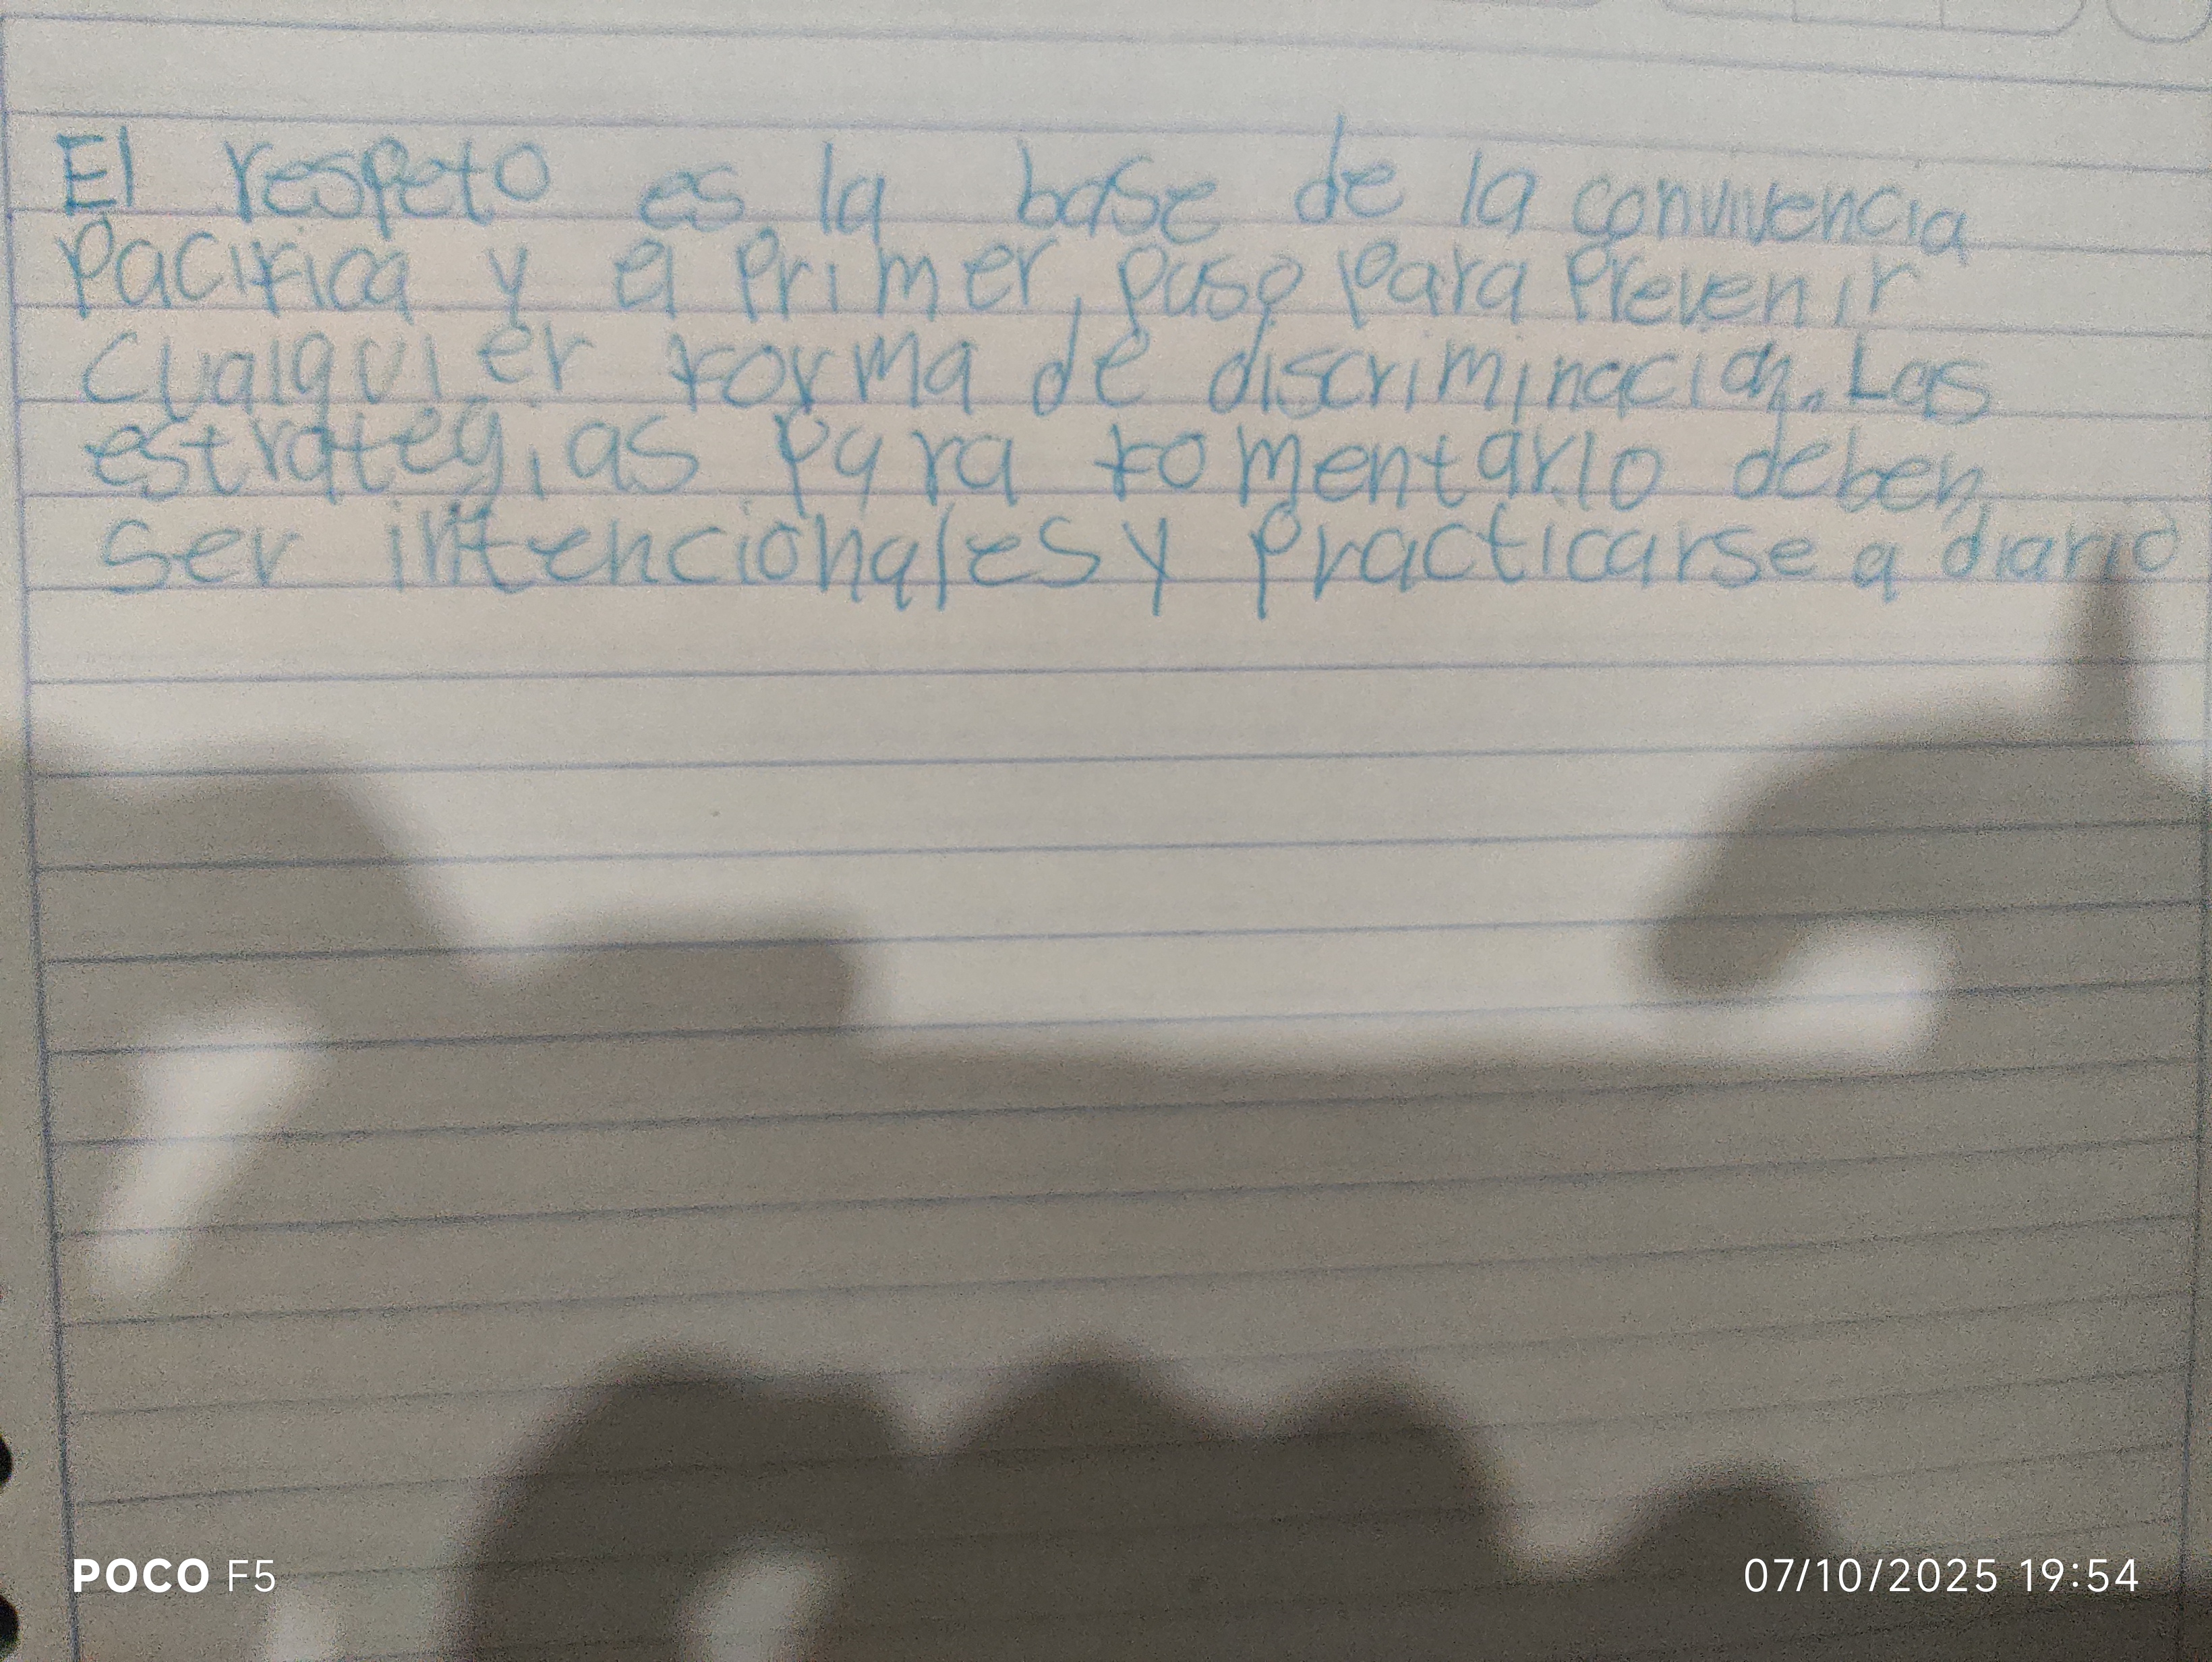 El respeto es la base de la convivencia
Pacifica y el Primer paso para Prevenir
Cualquier forma de discriminación. Las
estrategias para fomentarlo deben
ser intencionales y Practicarse a diario
POCO F5
07/10/2025 19:54